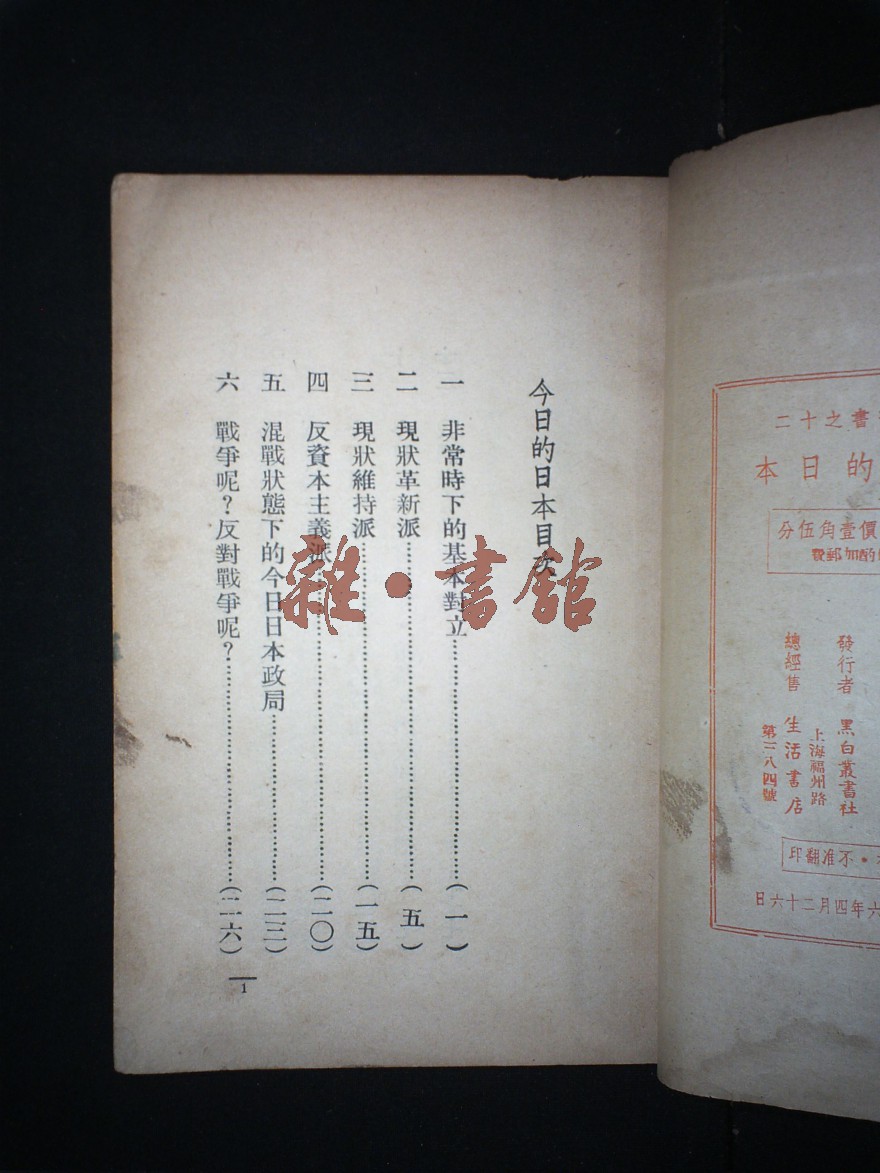 今日的日本目次
一 非常時下的基本對立……(一)
二 現狀革新派……(五)
三 現狀維持派……(一五)
四 反資本主義派……(二〇)
五 混戰狀態下的今日日本政局……(二三)
六 戰爭呢?反對戰爭呢?……(二六)
1
雜·書館
書之十二
的日本
價壹角伍分
酌加郵費
發行者 黑白叢書社
上海福州路
總經售 生活書店
第三八四號
·不准翻印
六年四月二十六日